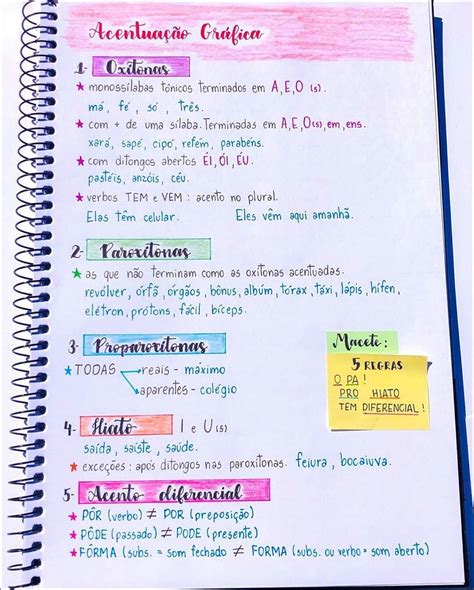 Acentuação Gráfica
1- Oxítonas
★ monossílabas tônicos terminados em A, E, O (s).
má, fé, só, três.
★ com + de uma sílaba. Terminadas em A, E, O(s), em, ens.
xará, sapé, cipó, refém, parabéns.
★ com ditongos abertos ÉI, ÓI, ÉU.
pastéis, anzóis, céu.
★ verbos TEM e VEM : acento no plural.
Elas têm celular. Eles vêm aqui amanhã.
2- Paroxítonas
★ as que não terminam como as oxítonas acentuadas.
revólver, órfã, órgãos, bônus, álbum, tórax, táxi, lápis, hífen,
elétron, prótons, fácil, bíceps.
3- Proparoxítonas
★ TODAS → reais - máximo
→ aparentes - colégio
Macete:
5 REGRAS
O PA!
PRO HIATO
TEM DIFERENCIAL!
4- Hiato I e U (s)
saída, saíste, saúde.
★ exceções: após ditongos nas paroxítonas. feiura, bocaiuva.
5- Acento diferencial
★ PÔR (verbo) ≠ POR (preposição)
★ PÔDE (passado) ≠ PODE (presente)
★ FÔRMA (subs. = som fechado ≠ FORMA (subs. ou verbo = som aberto)